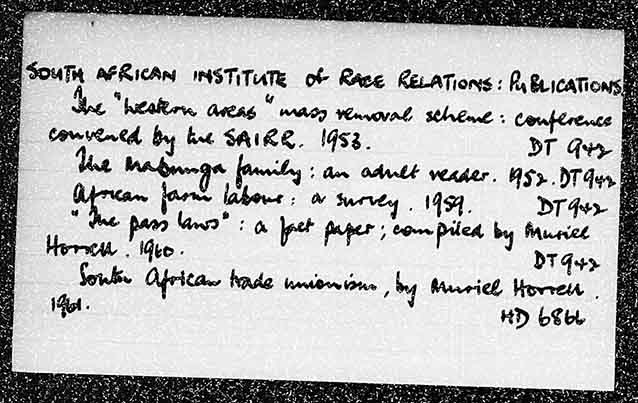 SOUTH AFRICAN INSTITUTE of RACE RELATIONS: PUBLICATIONS.
The "western areas" mass removal scheme: conference
convened by the SAIRR. 1953. DT 942
The Mabunga family: an adult reader. 1952. DT 942
African farm labour: a survey. 1959. DT 942
"The pass laws": a fact paper; compiled by Muriel
Horrell. 1960. DT 942
South African trade unionism, by Muriel Horrell.
1961. HD 6866